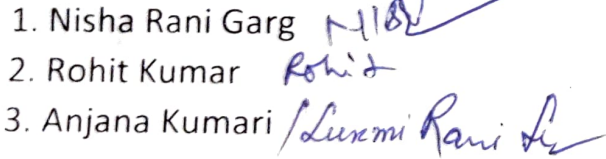 1. Nisha Rani Garg
2. Rohit Kumar Rohit
3. Anjana Kumari / Luxmi Rani